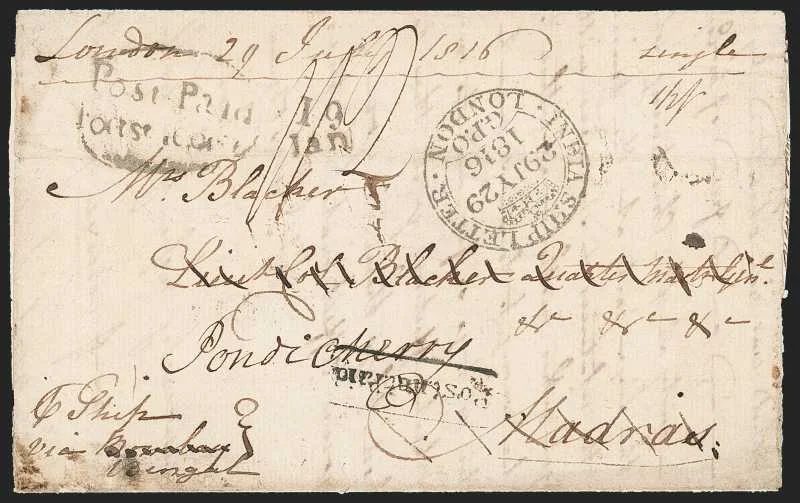 London 29 July 1816 single
Post Paid 19
Jan
INDIA SHIP LETTER · LONDON ·
G.P.O
1816
29 JY 29
Mrs Blacker
Lieut Col Blacker Quarter Mastr Genl.
&c &c &c
Pondicherry
Post Paid
Madras
P Ship
via Bombay
Bengal